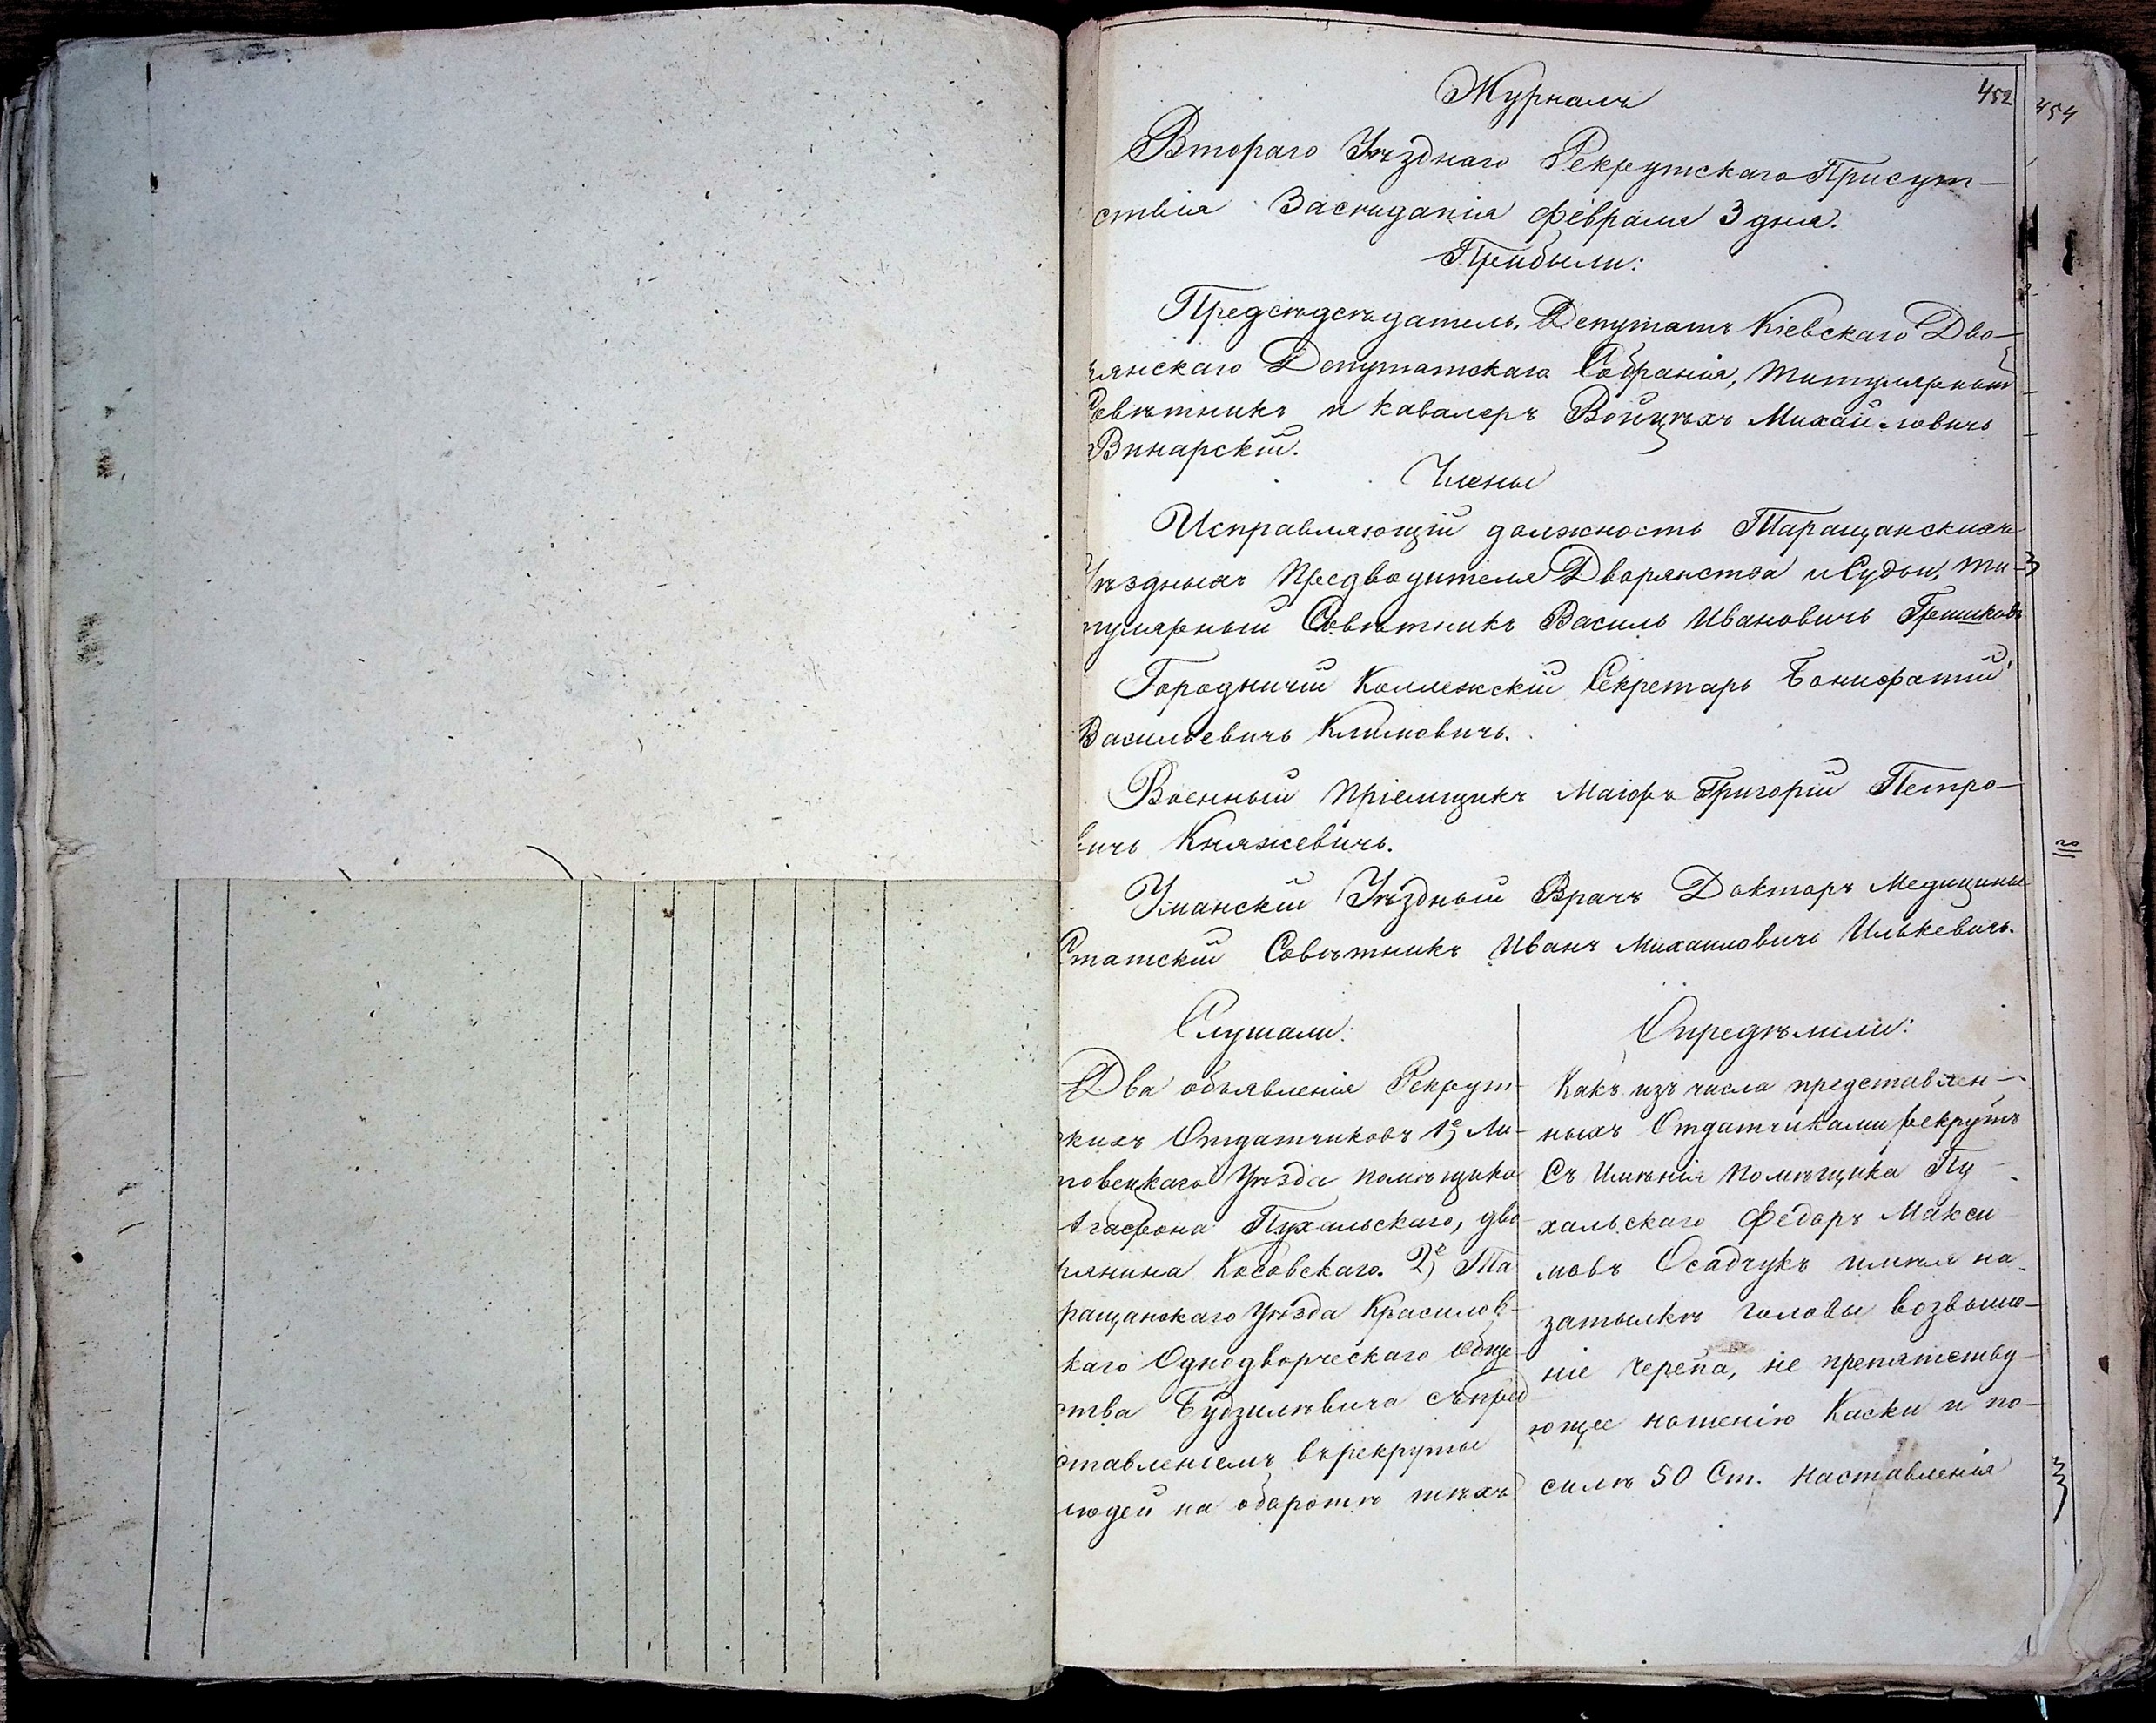 Журналъ
452
454
Втораго Уѣзднаго Рекрутскаго Присут-
ствія Засѣданія февраля 3 дня.
Прибыли:
Предсѣдсѣдатель, Депутатъ Кіевскаго Дво-
рянскаго Депутатскаго Собранія, титулярный
Совѣтникъ и кавалеръ Войцѣхъ Михайловичъ
Винарскій.
Члены
Исправляющій должность Таращанскихъ
Уѣздныхъ Предводителя Дворянства и Судьи, ти-
тулярный Совѣтникъ Василь Ивановичъ
Городничій Коллежскій Секретарь Бонифатій
Васильевичъ Климовичъ.
Военный Пріемщикъ Маіоръ Григорій Петро-
вичъ Княжевичъ.
Уманскій Уѣздный Врачъ Докторъ Медицины
Статскій Совѣтникъ Иванъ Михаиловичъ Илькевичъ.
Слушали:
Два объявленія Рекрут-
скихъ Отдатчиковъ 1е, Ли-
повецкаго Уѣзда помѣщика
Агафона Пухальскаго, дво-
рянина Косовскаго. 2е, Та
ращанскаго Уѣзда Красилов-
каго Однодворческаго обще-
ства Будзилѣвича съ пред
ставленіемъ въ рекруты
людей на оборотѣ тѣхъ
Опредѣлили:
Какъ изъ числа представлен-
ныхъ Отдатчиками рекрутъ
Съ Имѣнія Помѣщика Пу-
хальскаго Федоръ Макси
мовъ Осадчукъ имѣя на
затылкѣ головы возвыше-
ніе черепа, не препятству-
ющее ношенію Каски и по-
силѣ 50 Ст. Наставленія